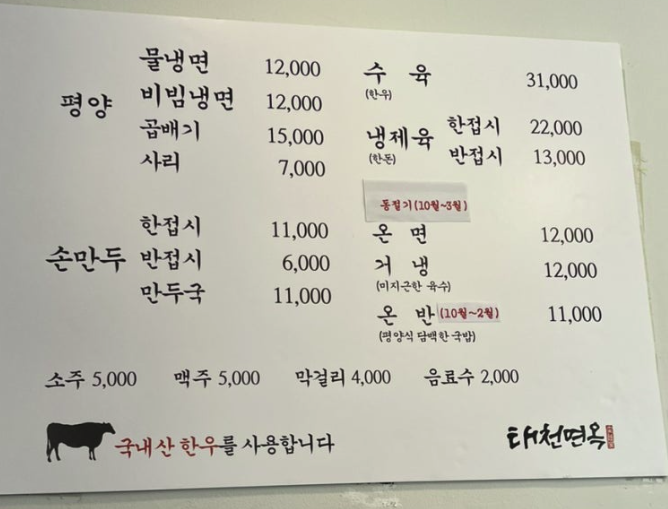 평양
물냉면 12,000
비빔냉면 12,000
곱배기 15,000
사리 7,000
손만두
한접시 11,000
반접시 6,000
만두국 11,000
수육 31,000
(한우)
냉제육
(한돈)
한접시 22,000
반접시 13,000
동절기(10월~3월)
온면 12,000
거냉 12,000
(미지근한 육수)
온반(10월~2월) 11,000
(평양식 담백한 국밥)
소주 5,000 맥주 5,000 막걸리 4,000 음료수 2,000
국내산 한우를 사용합니다
태천면옥